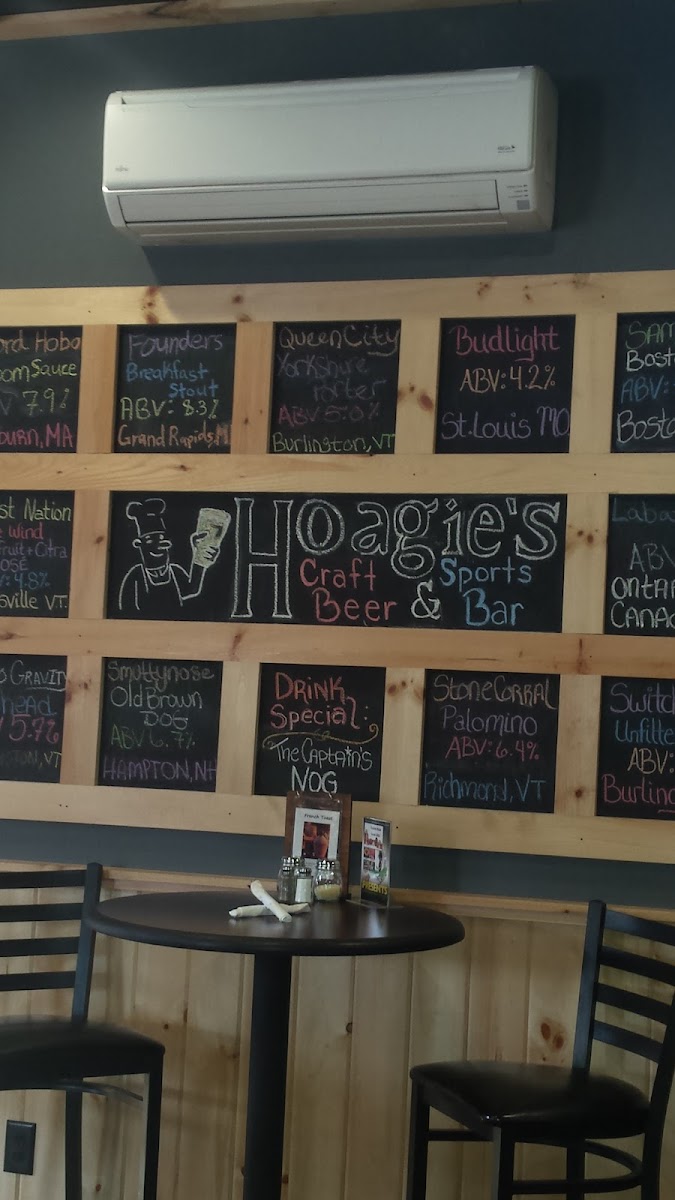 ord Hobo
oomSauce
V 7.9%
burn, MA
Founders
Breakfast
Stout
ABV: 8.3%
Grand Rapids, M
Queen City
Yorkshire
Porter
ABV 5.0%
Burlington, VT
Budlight
ABV: 4.2%
St. Louis MO
SAM
Bost
ABV:
Bosto
st Nation
e Wind
fruit + Citra
OSE
V: 4.8%
sville V.T.
Hoagie's
Craft
Beer & Sports
Bar
Laba
ABV
ONTAR
CANAD
o GRAVITY
head
V 5.7%
NGTON, VT
Smuttynose
Old Brown
DOG
ABV 6.7%
HAMPTON, NH
DRINK
Special:
The CAptAin's
NOG
Stone CORRAL
Palomino
ABV: 6.4%
Richmond, VT
Switch
Unfilte
ABV:
Burling
French Toast
PRESENTS